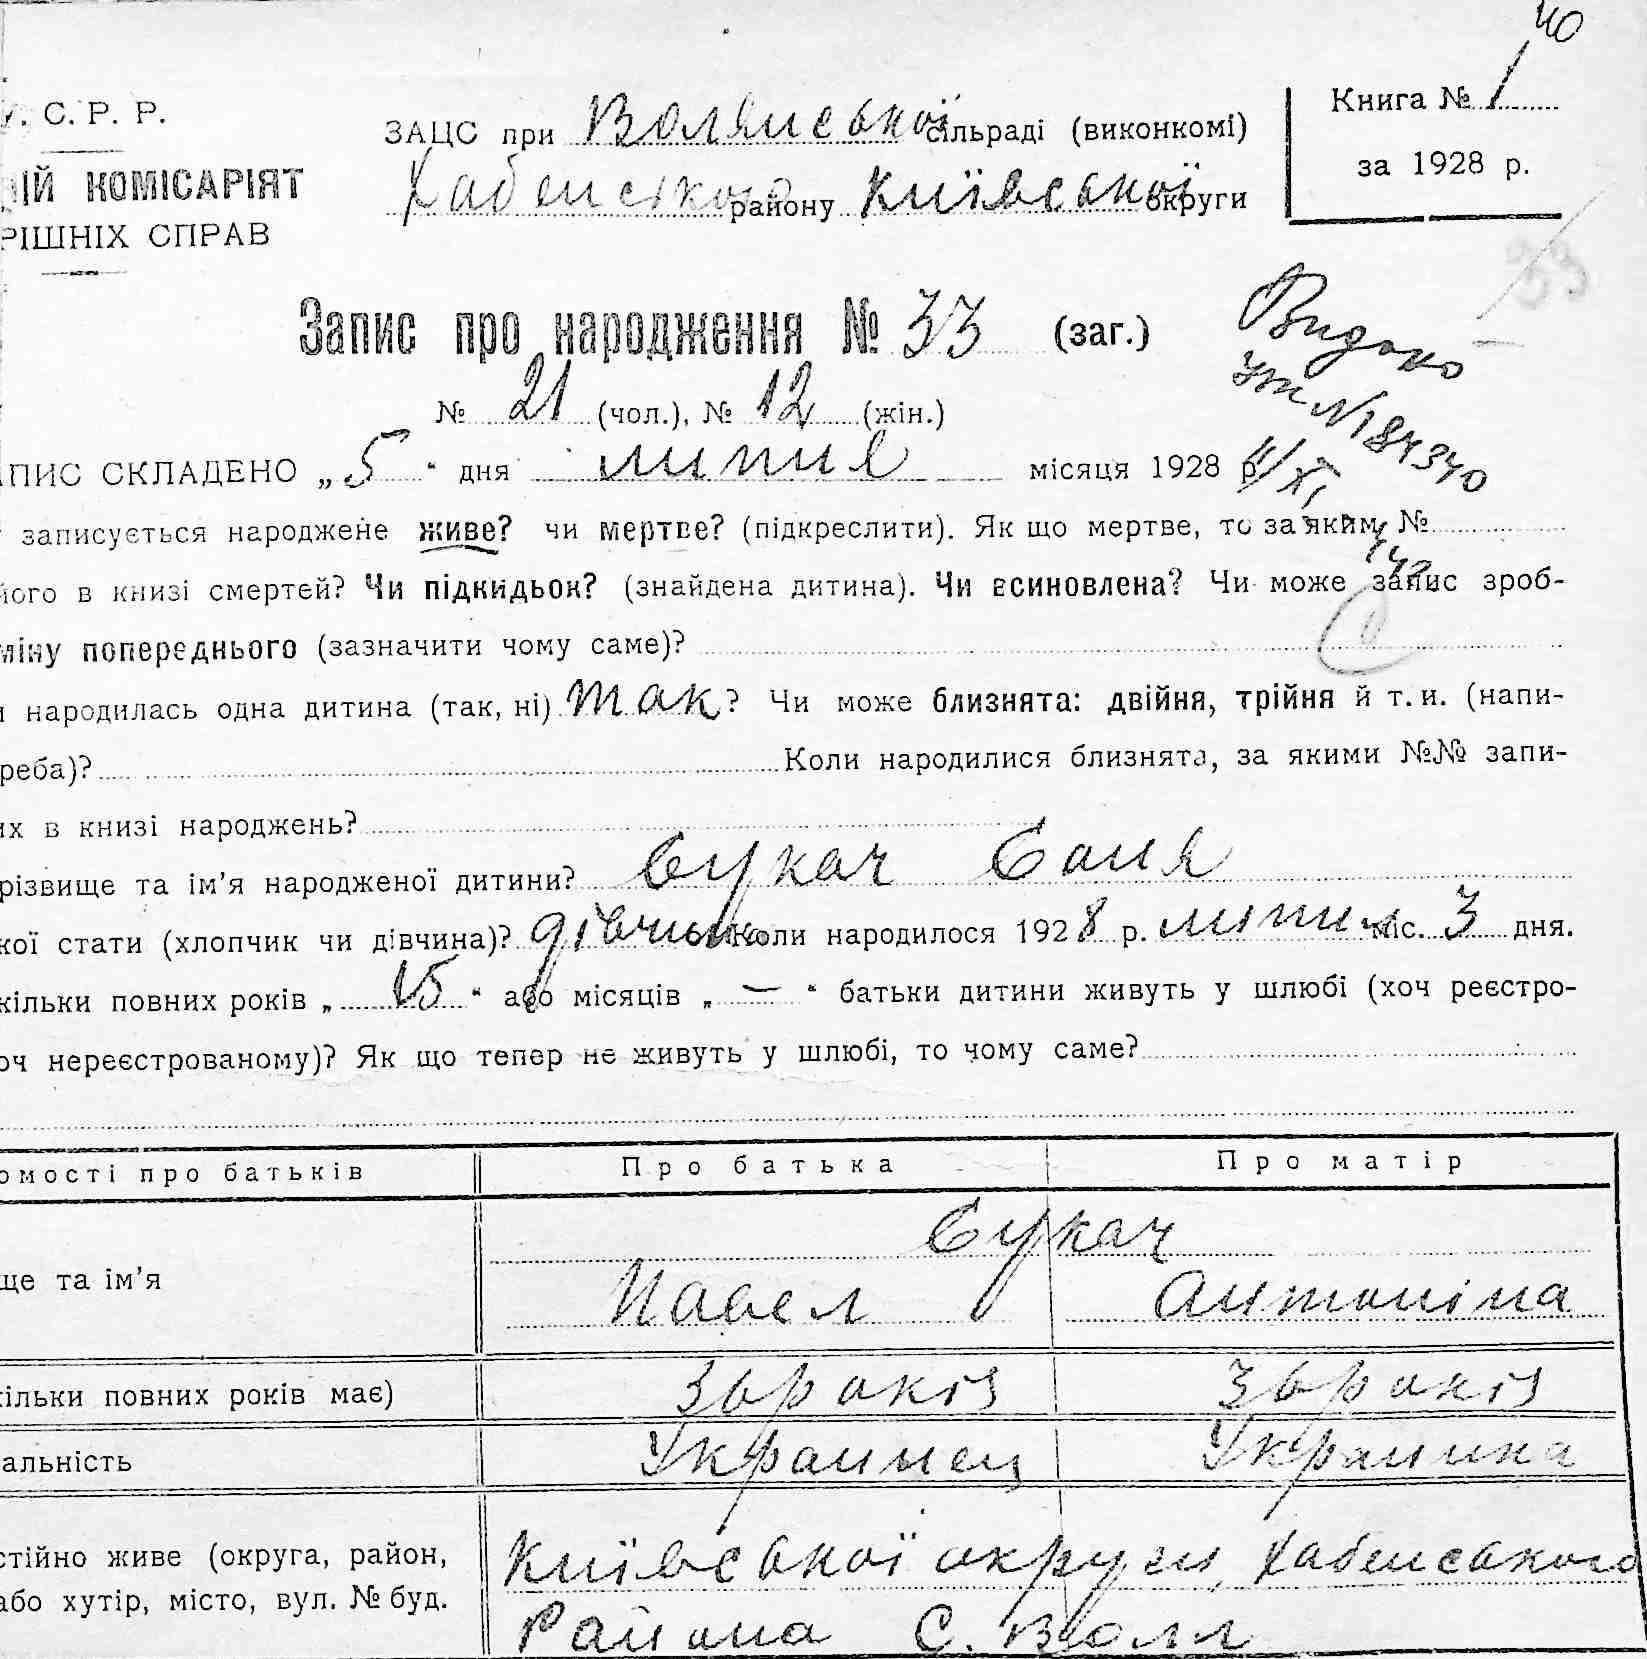 40
У. С. Р. Р.
ЗАЦС при Волянської сільраді (виконкомі)
Книга № 1
ІЙ КОМІСАРІЯТ
Хабенського району Київської округи
за 1928 р.
РІШНІХ СПРАВ
Запис про народження № 33 (заг.)
Видано
№ 21 (чол.), № 12 (жін.)
№184340
ПИС СКЛАДЕНО „5“ дня липня місяця 1928 р.
II/XI
записується народжене живе? чи мертве? (підкреслити). Як що мертве, то за яким №
його в книзі смертей? Чи підкидьок? (знайдена дитина). Чи всиновлена? Чи може запис зроб-
міну попереднього (зазначити чому саме)?
и народилась одна дитина (так, ні) так? Чи може близнята: двійня, трійня й т. и. (напи-
реба)? Коли народилися близнята, за якими №№ запи-
их в книзі народжень?
різвище та ім’я народженої дитини? Сукач Соня
кої стати (хлопчик чи дівчина)? дівчина Коли народилося 1928 р. липня міс. 3 дня.
кільки повних років „15“ або місяців „—“ батьки дитини живуть у шлюбі (хоч реєстро-
оч нереєстрованому)? Як що тепер не живуть у шлюбі, то чому саме?
омості про батьків Про батька Про матір
Сукач
ще та ім’я Павел Антоніна
кільки повних років має) років років
альність Украинец Украинка
стійно живе (округа, район, Київської округи, Хабенського
або хутір, місто, вул. № буд. Района С. Воля